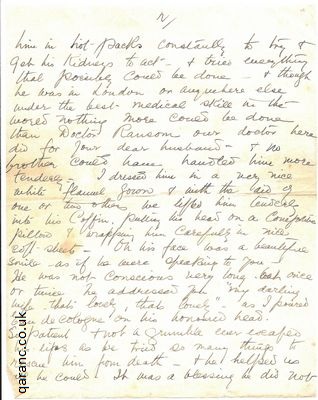 2/
him in hot-packs constantly to try &
get his Kidneys to act - & tried everything
that possibly could be done - & though
he was in London or anywhere else
under the best medical skill in the
world nothing more could be done
than Doctor Ransom our doctor here
did for your dear husband - & no
brother could have handled him more
tenderly - I dressed him in a very nice
white flannel gown & with the aid of
one or two others we lifted him tenderly
into his Coffin, putting his head on a
pillow & wrapping him carefully in nice
soft sheets - On his face was a beautiful
smile - as if he were speaking to you -
He was not conscious very long - but once
or twice he addressed you "my darling
wife - that's lovely, that lovely" - as I poured
eau de cologne on his honoured head.
So patient & not a grumble ever escaped
lips as he tried so many things to
rescue him from death - & he helped us
he could. It was a blessing he did not
qaranc.co.uk